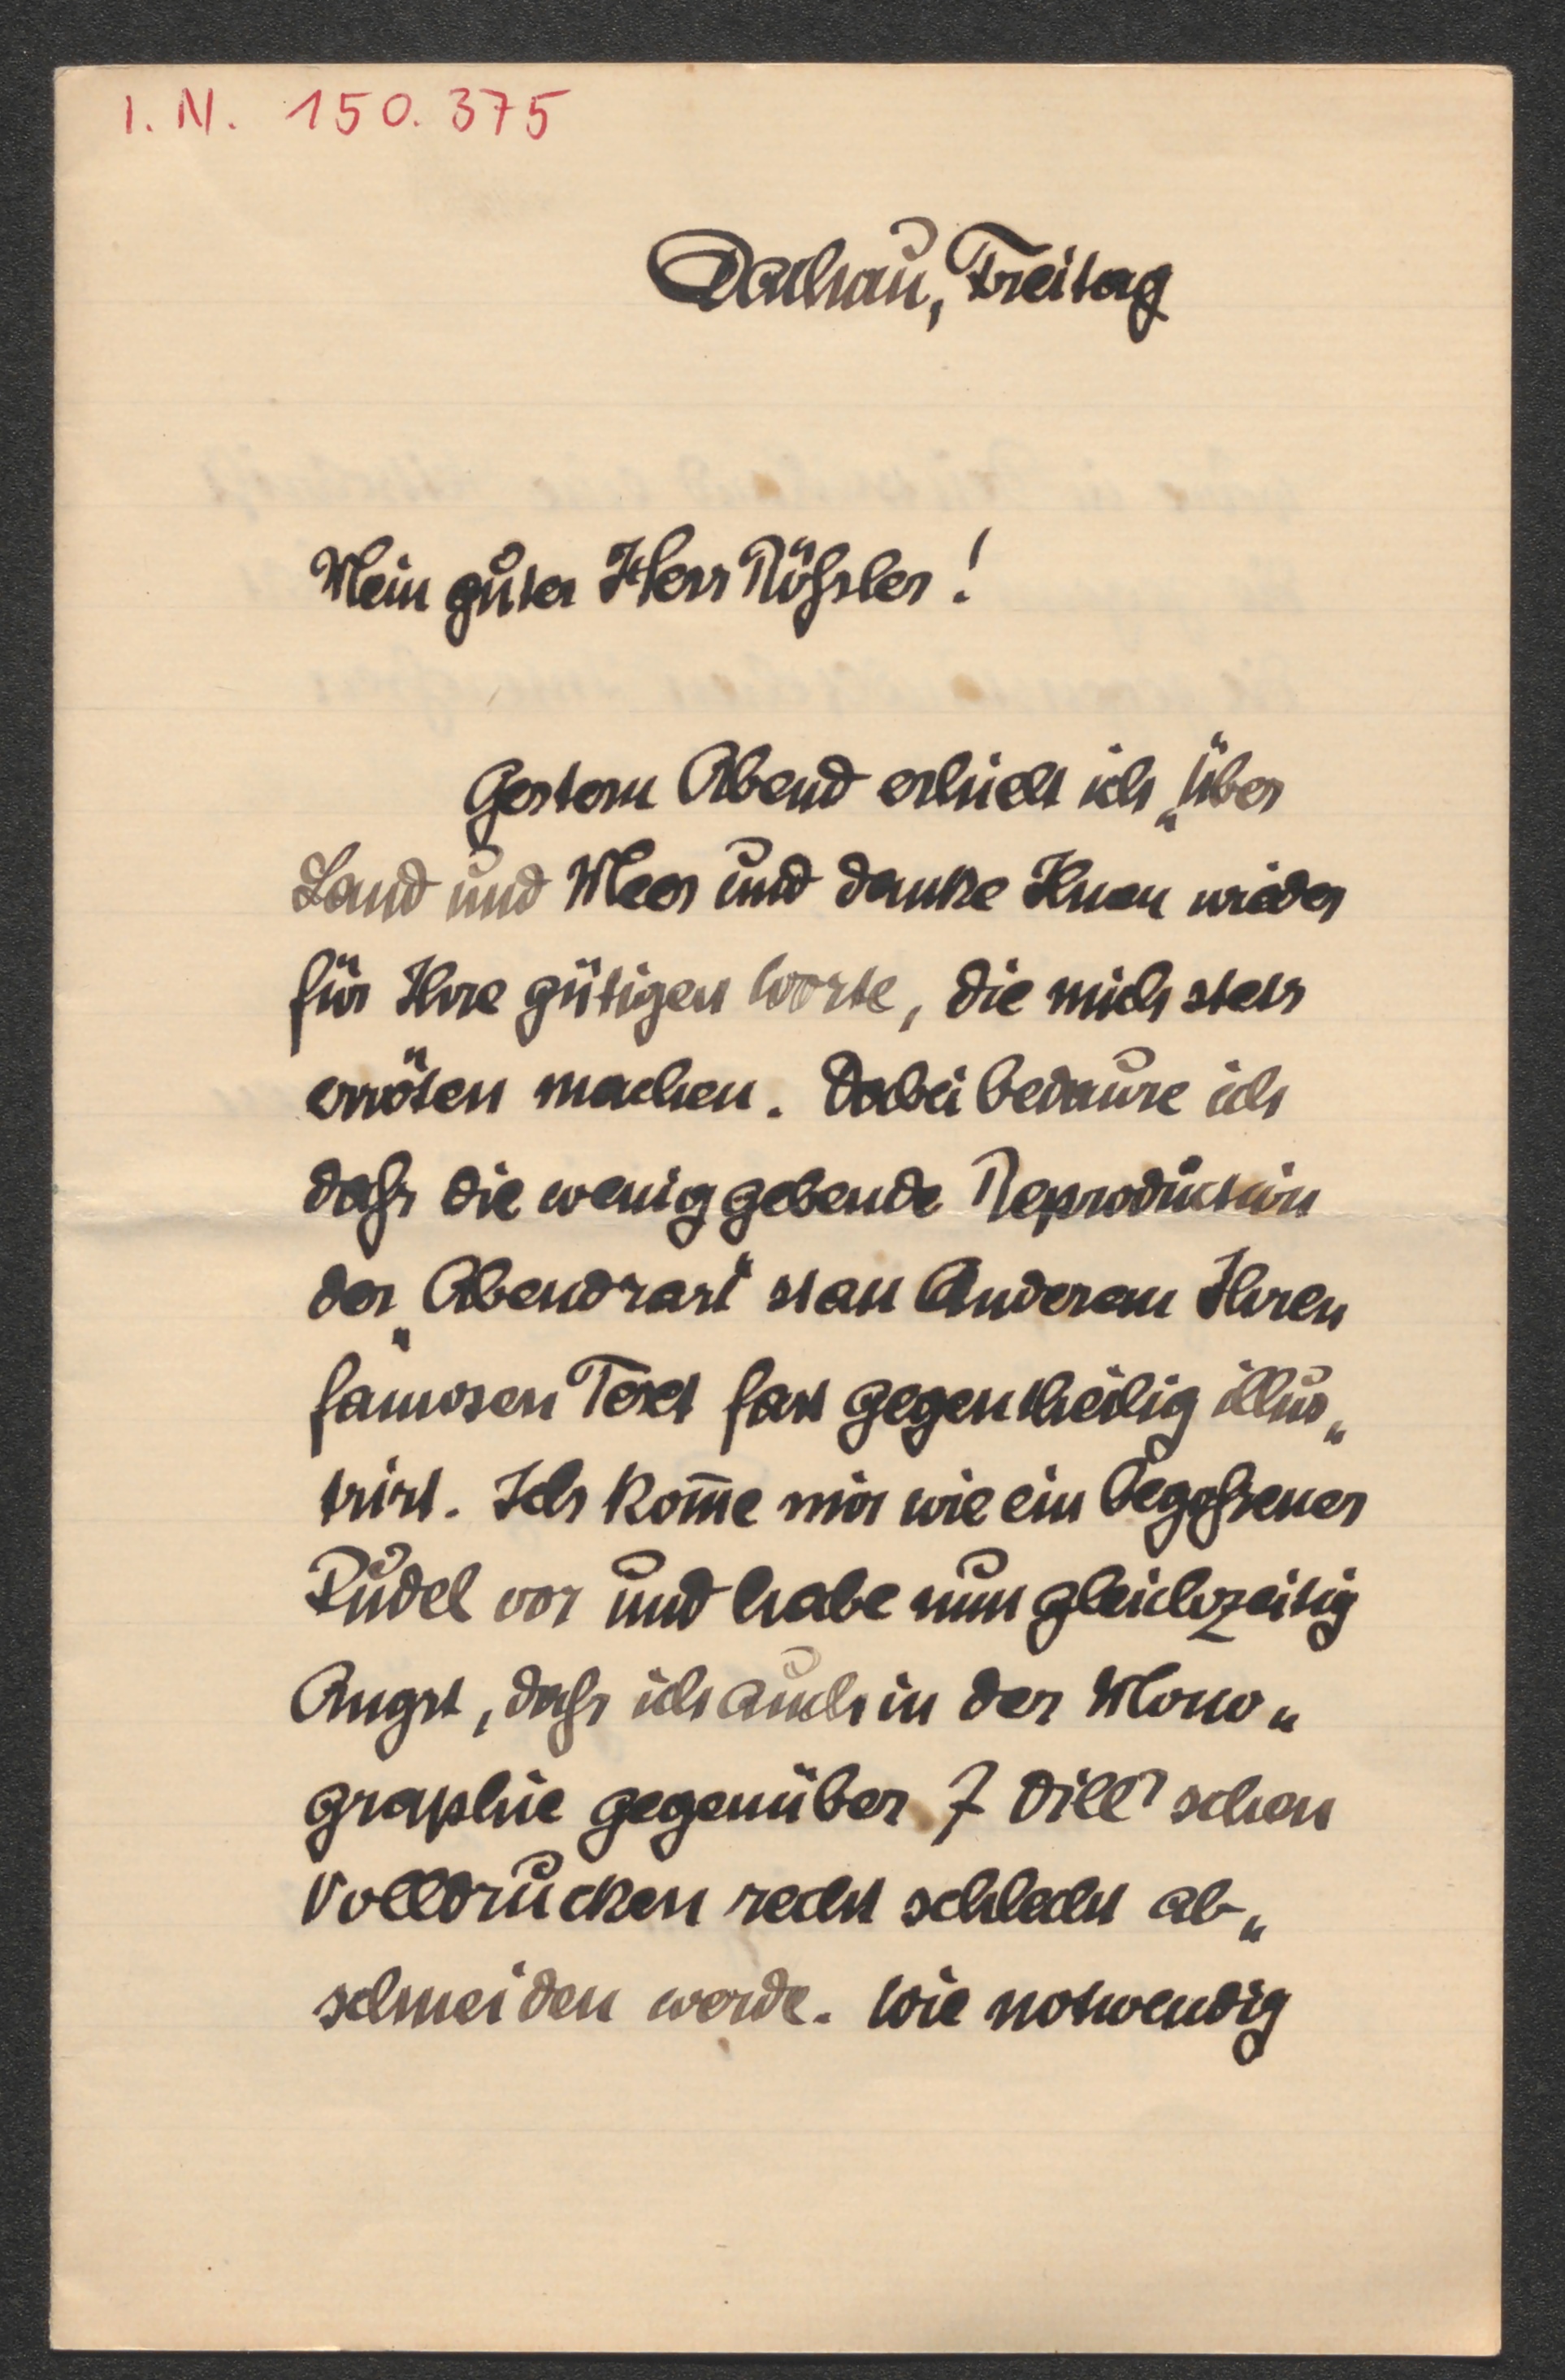 I. N. 150.375
Dachau, Freitag
Mein guter Herr Rößler!
Gestern Abend erhielt ich „Über
Land und Meer und danke Ihnen wieder
für Ihre gütigen Worte, die mich stets
erröten machen. Dabei bedaure ich
daß die wenig gebende Reproduction
der „Abendrast“ statt Anderem Ihren
famosen Text fast gegentheilig illus„
trirt. Ich kom̅e mir wie ein begoßener
Pudel vor und habe nun gleichzeitig
Angst, daß ich auch in der Mono„
graphie gegenüber 7 Dill’schen
Volldrucken recht schlecht ab„
schneiden werde. Wie notwendig